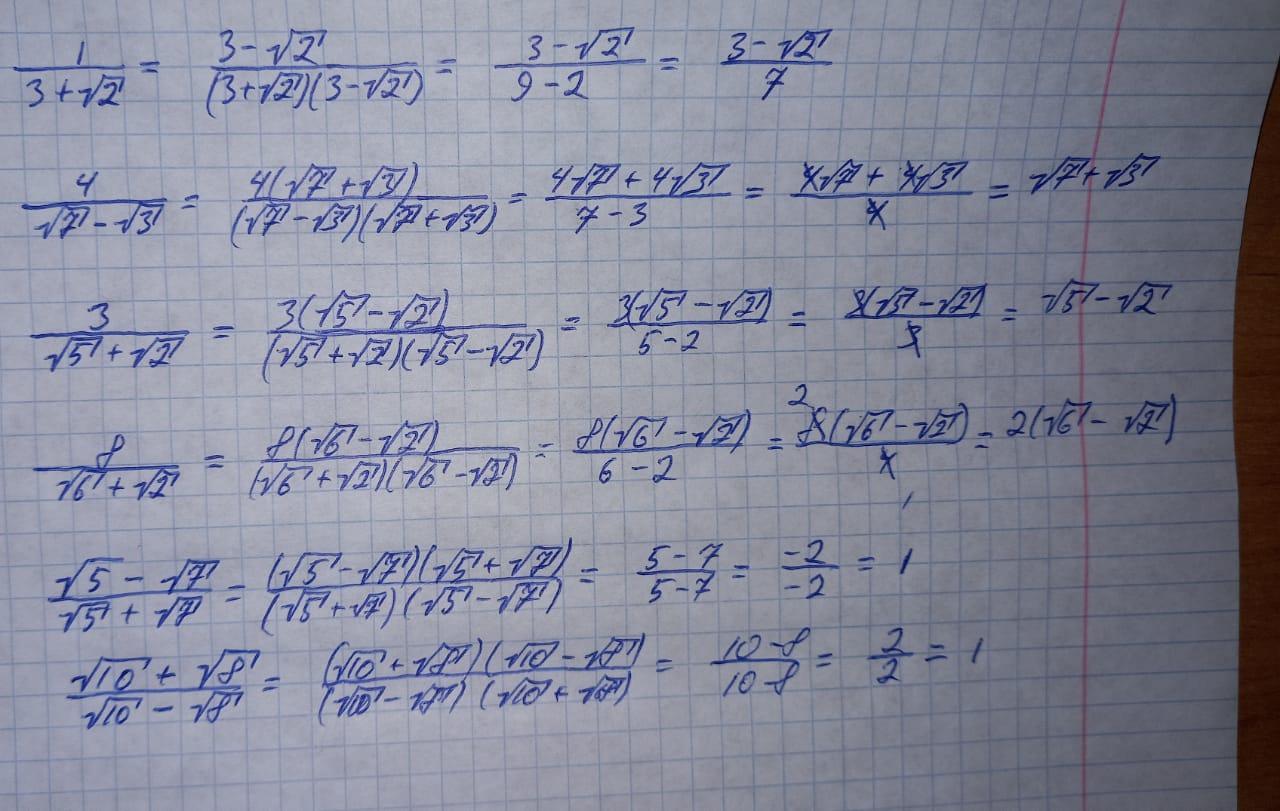 1/(3+√2) = (3-√2)/((3+√2)(3-√2)) = (3-√2)/(9-2) = (3-√2)/7
4/(√7-√3) = 4(√7+√3)/((√7-√3)(√7+√3)) = (4√7+4√3)/(7-3) = (4√7+4√3)/4 = √7+√3
3/(√5+√2) = 3(√5-√2)/((√5+√2)(√5-√2)) = 3(√5-√2)/(5-2) = 3(√5-√2)/3 = √5-√2
8/(√6+√2) = 8(√6-√2)/((√6+√2)(√6-√2)) = 8(√6-√2)/(6-2) = 2 8(√6-√2)/4 1 = 2(√6-√2)
(√5-√7)/(√5+√7) = (√5-√7)(√5+√7)/((√5+√7)(√5-√7)) = (5-7)/(5-7) = -2/-2 = 1
(√10+√8)/(√10-√8) = (√10+√8)(√10-√8)/((√10-√8)(√10+√8)) = (10-8)/(10-8) = 2/2 = 1